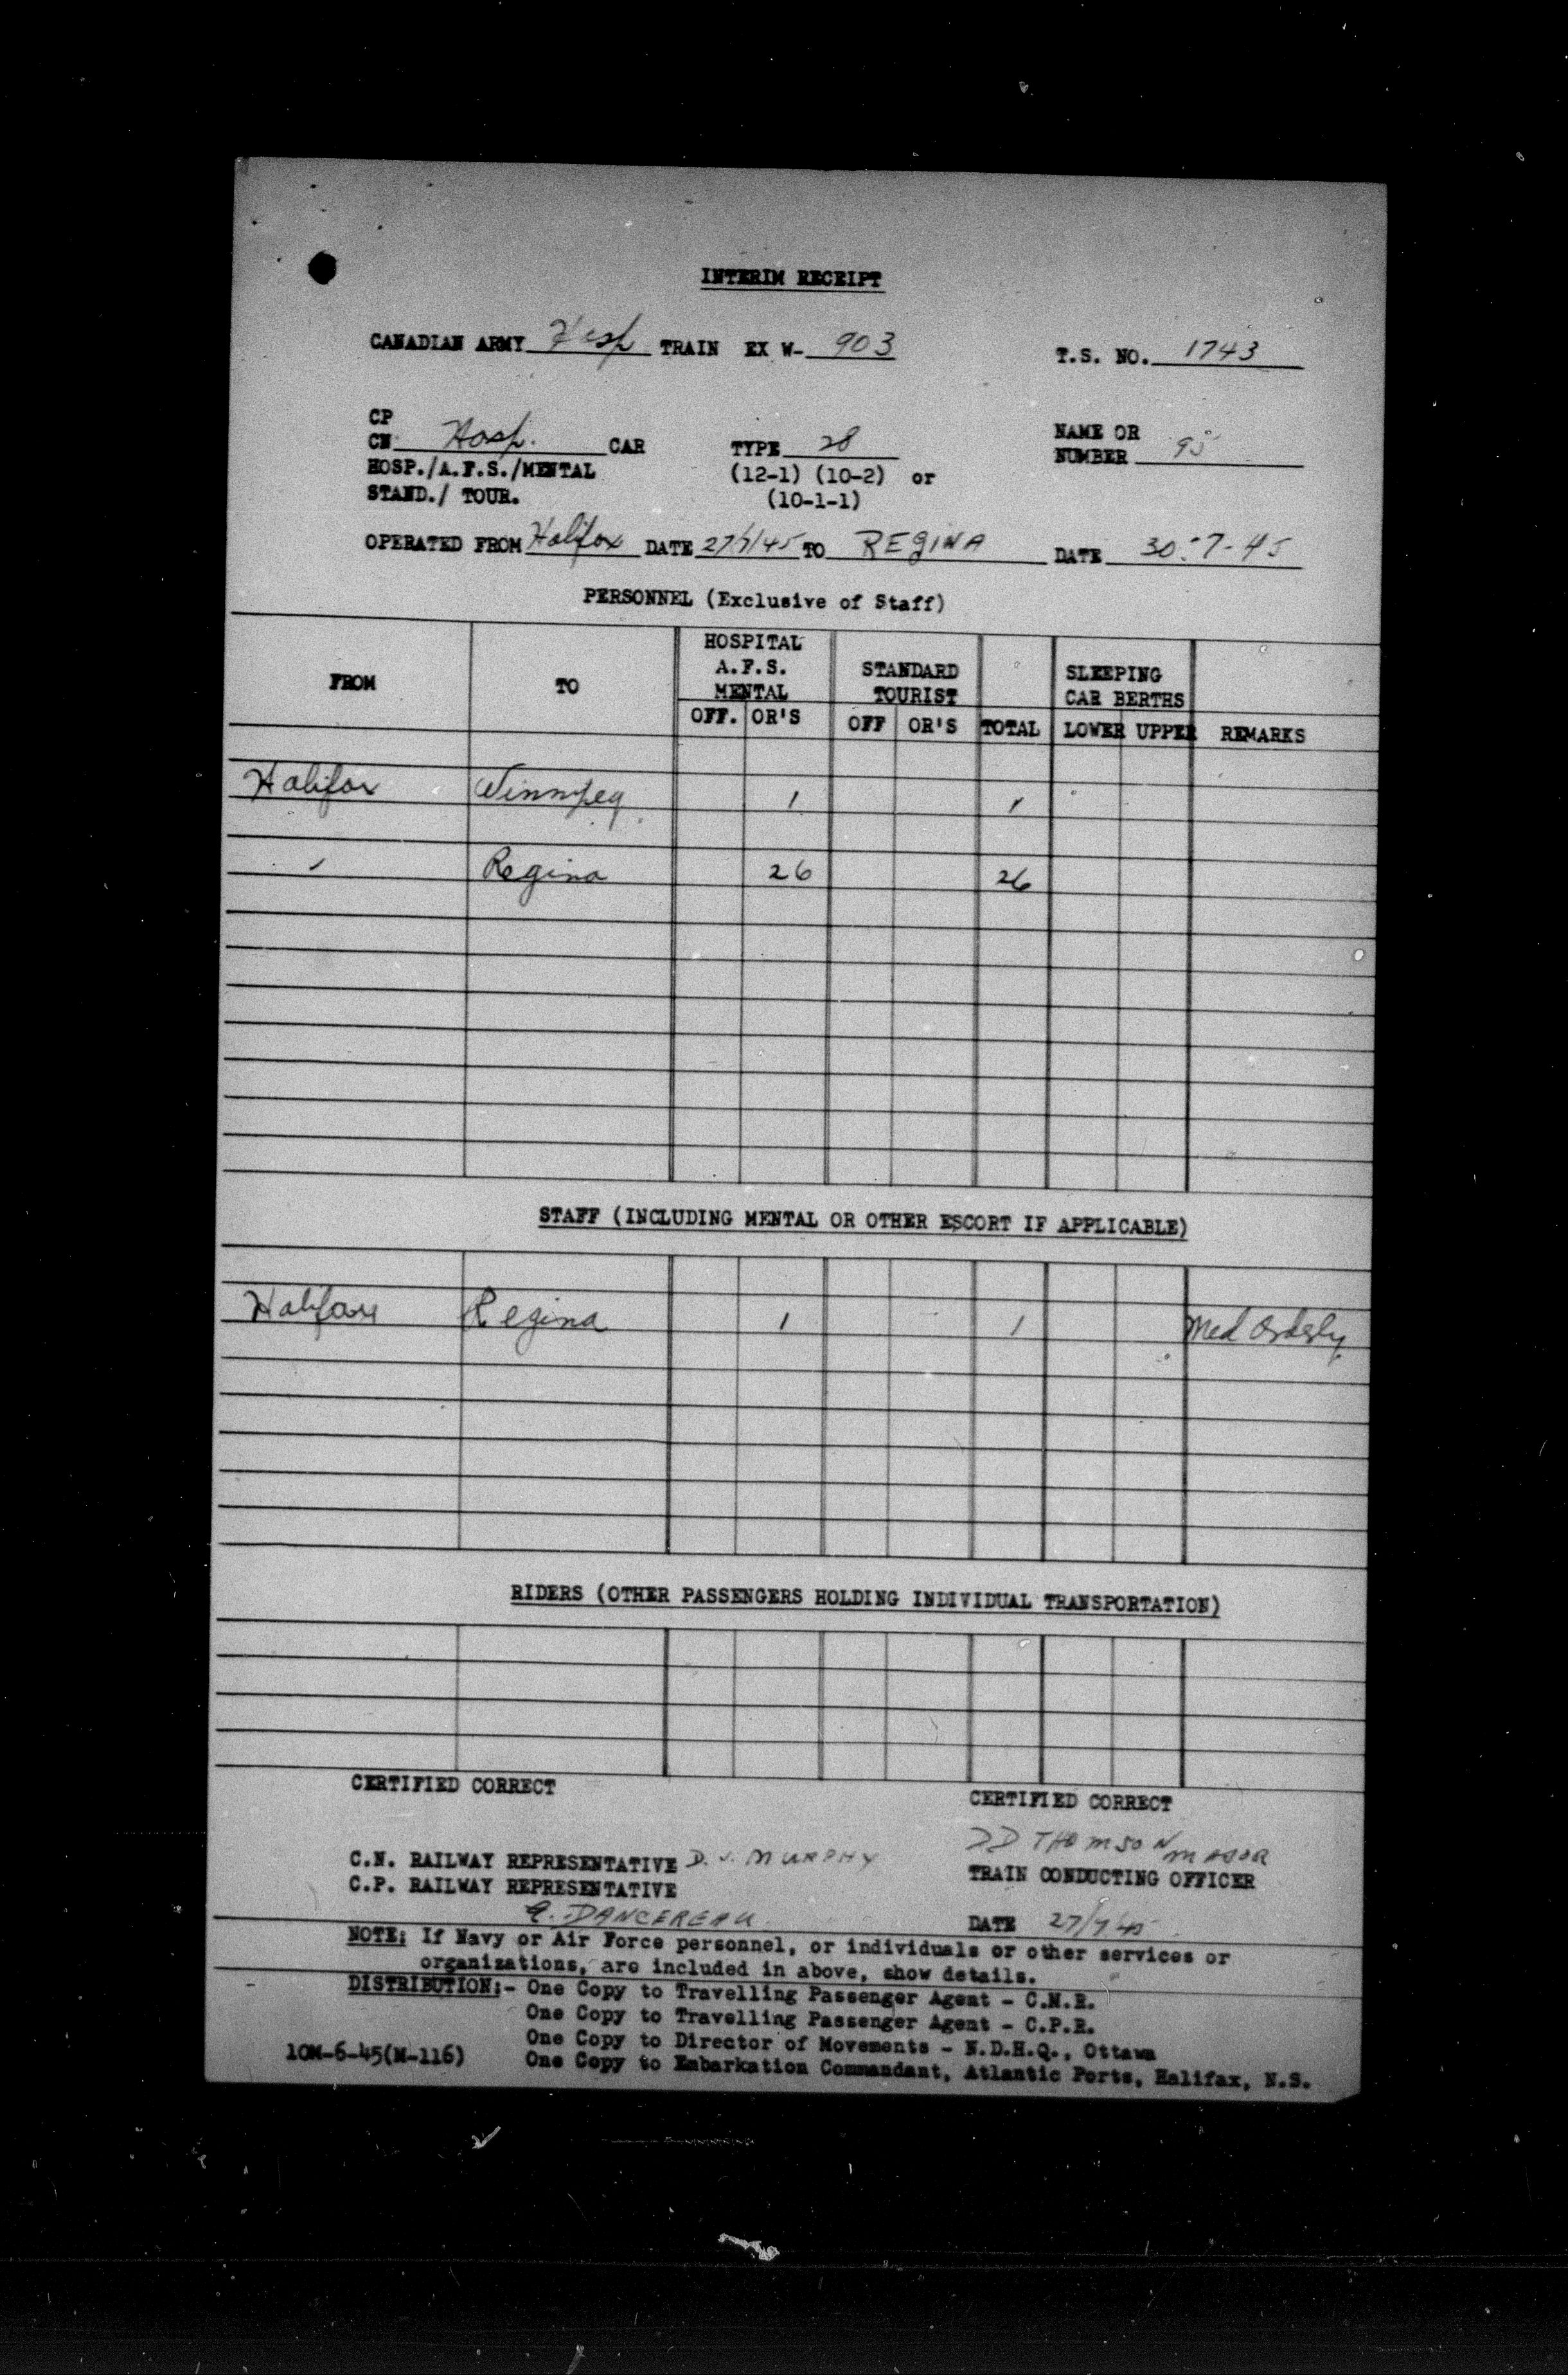 INTERIM RECEIPT
CANADIAN ARMY Hosp TRAIN EX W- 903 T.S. NO. 1743
CP
CN Hosp. CAR TYPE 28 NAME OR NUMBER 95
HOSP./A.F.S./MENTAL (12-1) (10-2) or
STAND./ TOUR. (10-1-1)
OPERATED FROM Halifax DATE 27/7/45 TO REGINA DATE 30-7-45
PERSONNEL (Exclusive of Staff)
FROM TO HOSPITAL A.F.S. MENTAL STANDARD TOURIST SLEEPING CAR BERTHS
OFF. OR'S OFF OR'S TOTAL LOWER UPPER REMARKS
Halifax Winnipeg 1 1
" Regina 26 26
STAFF (INCLUDING MENTAL OR OTHER ESCORT IF APPLICABLE)
Halifax Regina 1 1 Med Orderly
RIDERS (OTHER PASSENGERS HOLDING INDIVIDUAL TRANSPORTATION)
CERTIFIED CORRECT CERTIFIED CORRECT
DD THOMSON MAJOR
C.N. RAILWAY REPRESENTATIVE D. J. MURPHY TRAIN CONDUCTING OFFICER
C.P. RAILWAY REPRESENTATIVE
DANCEREAU DATE 27/7/45
NOTE: If Navy or Air Force personnel, or individuals or other services or
organizations, are included in above, show details.
DISTRIBUTION:- One Copy to Travelling Passenger Agent - C.N.R.
One Copy to Travelling Passenger Agent - C.P.R.
One Copy to Director of Movements - N.D.H.Q., Ottawa
10M-6-45(M-116) One Copy to Embarkation Commandant, Atlantic Ports, Halifax, N.S.